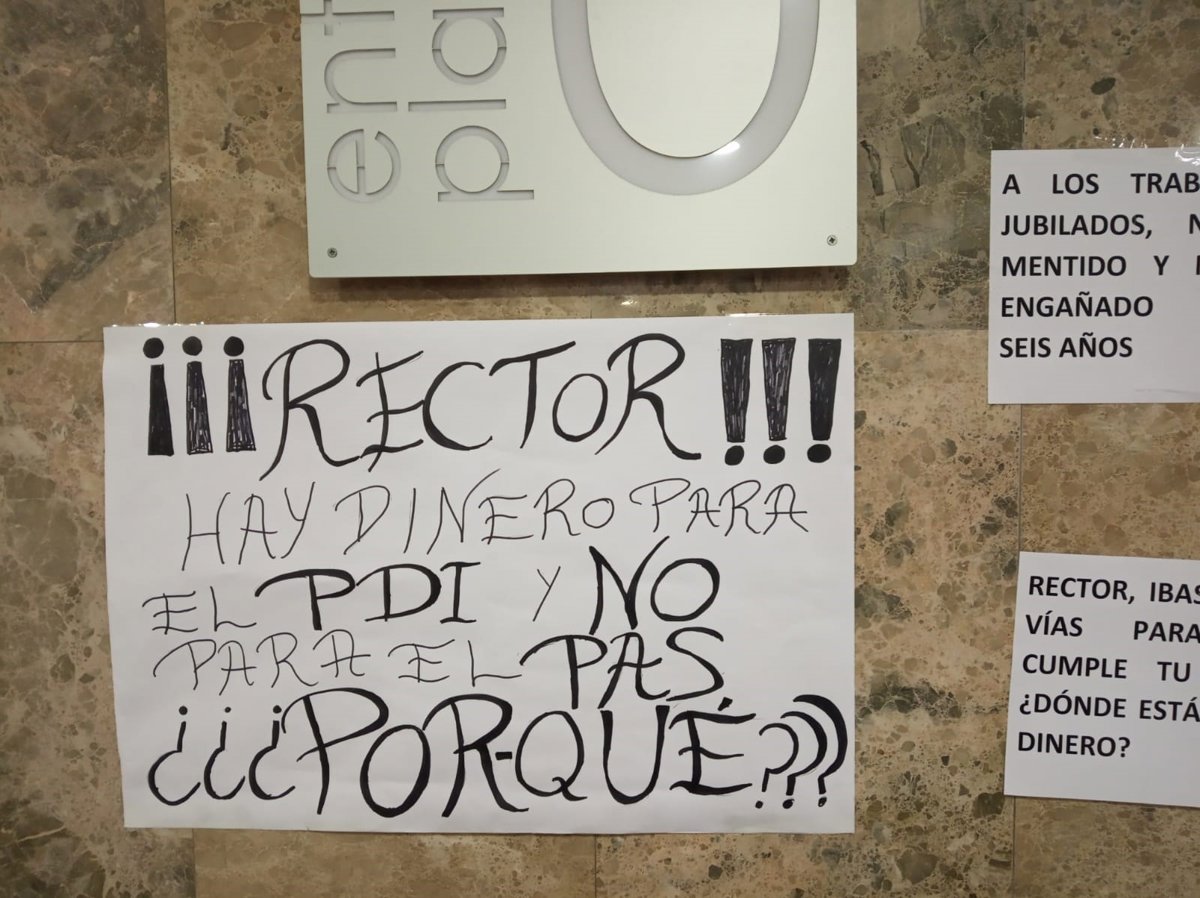 ¡¡¡RECTOR!!!
HAY DINERO PARA
EL PDI Y NO
PARA EL PAS
¿¿¿POR-QUÉ???
A LOS
JUBILADOS,
MENTIDO Y
ENGAÑADO
SEIS AÑOS
RECTOR,
VÍAS PARA
CUMPLE TU
¿DÓNDE ESTÁ
DINERO?